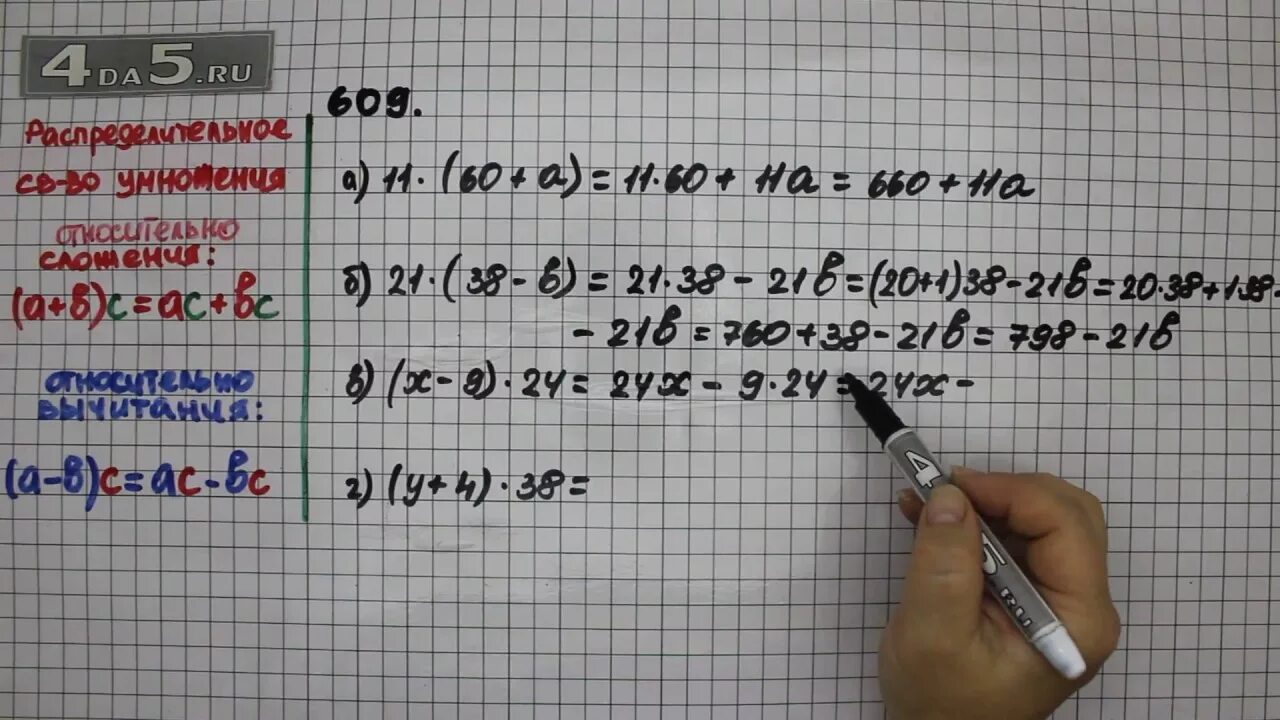 4DA5.RU
Распределительное
св-во умножения
относительно
сложения:
(a+в)c=ac+вc
относительно
вычитания:
(a-в)c=ac-вc
609.
а) 11·(60+a)=11·60+11a=660+11a
б) 21·(38-в)=21·38-21в=(20+1)38-21в=20·38+1·38-
-21в=760+38-21в=798-21в
в) (x-9)·24=24x-9·24=24x-
г) (y+4)·38=
4
5.RU